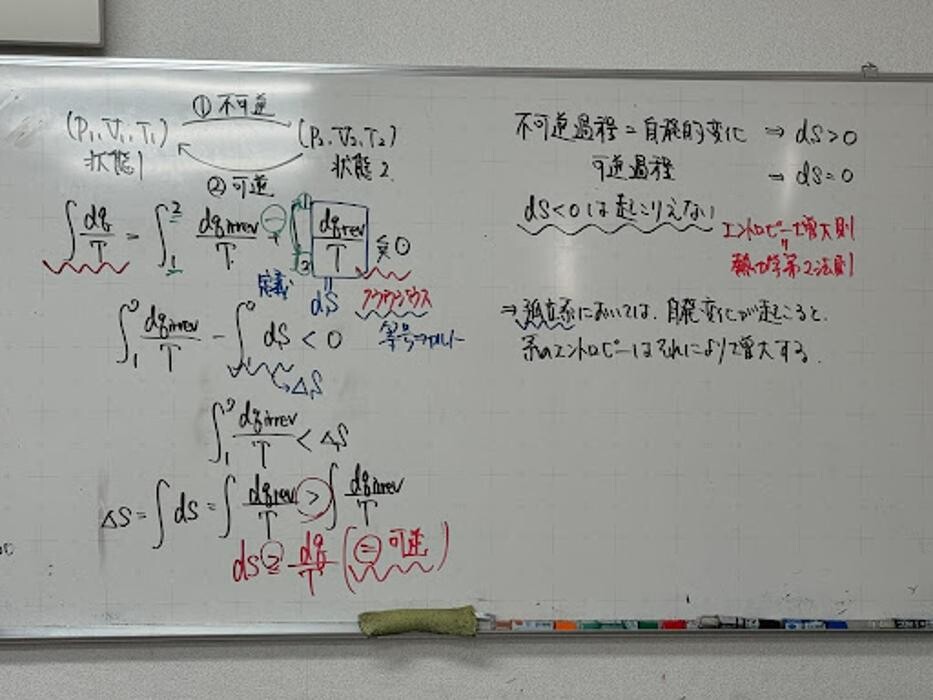 ① 不可逆
(P₁, V₁, T₁) (P₂, V₂, T₂)
状態1 状態2
② 可逆
∫ dq/T = ∫₁² dq_irrev/T − ∫ dq_rev/T ≦ 0
定義 dS クラウジウス
∫₁² dq_irrev/T − ∫₁² dS < 0 等号→
→ΔS
∫₁² dq_irrev/T < ΔS
ΔS = ∫ dS = ∫ dq_rev/T > ∫ dq_irrev/T
dS ≧ dq/T (= 可逆)
不可逆過程 = 自発的変化 ⇒ dS > 0
可逆過程 → dS = 0
dS < 0 は起こりえない
エントロピー増大則
=
熱力学第2法則
⇒ 孤立系においては、自発変化が起こると、
系のエントロピーはそれにより増大する.